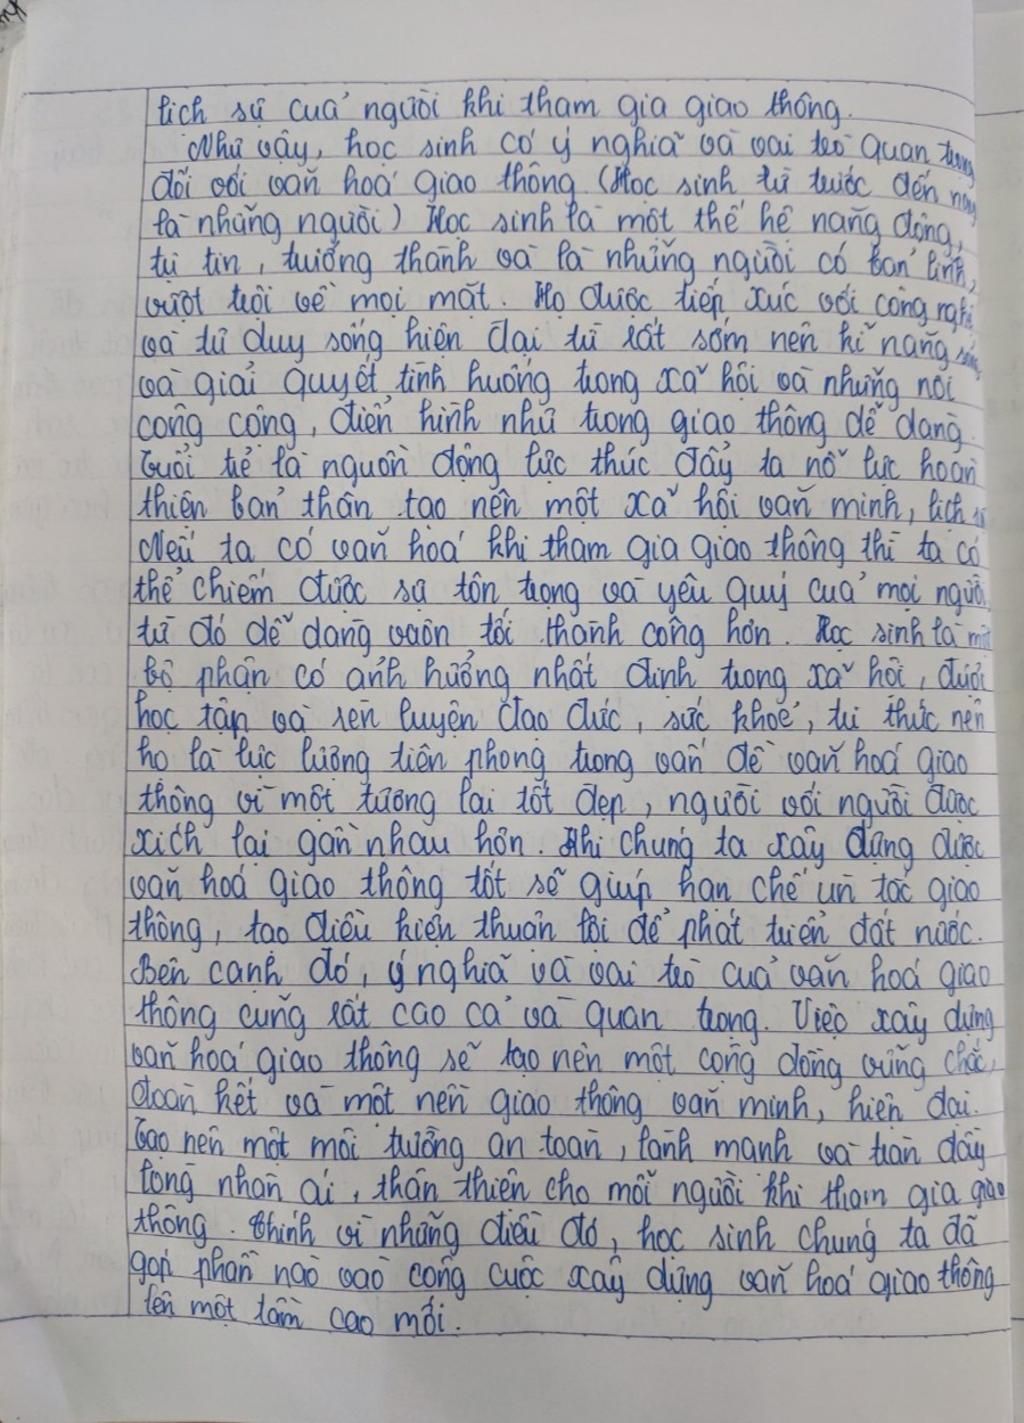 lịch sự của người khi tham gia giao thông.
Như vậy, học sinh có ý nghĩa và vai trò quan trọng
đối với văn hoá giao thông (Học sinh từ trước đến nay
là những người) Học sinh là một thế hệ năng động,
tự tin, trưởng thành và là những người có bản lĩnh,
vượt trội về mọi mặt. Họ được tiếp xúc với công nghệ
và tư duy sống hiện đại từ rất sớm nên kĩ năng sống
và giải quyết tình huống trong xã hội và những nơi
công cộng, điển hình như trong giao thông dễ dàng.
Tuổi trẻ là nguồn động lực thúc đẩy ta nỗ lực hoàn
thiện bản thân tạo nên một xã hội văn minh, lịch sự
Nếu ta có văn hoá khi tham gia giao thông thì ta có
thể chiếm được sự tôn trọng và yêu quý của mọi người,
từ đó dễ dàng vươn tới thành công hơn. Học sinh là một
bộ phận có ảnh hưởng nhất định trong xã hội, được
học tập và rèn luyện đạo đức, sức khoẻ, tri thức nên
họ là lực lượng tiên phong trong vấn đề văn hoá giao
thông vì một tương lai tốt đẹp, người với người được
xích lại gần nhau hơn. Khi chúng ta xây dựng được
văn hoá giao thông tốt sẽ giúp hạn chế ùn tắc giao
thông, tạo điều kiện thuận lợi để phát triển đất nước.
Bên cạnh đó, ý nghĩa và vai trò của văn hoá giao
thông cũng rất cao cả và quan trọng. Việc xây dựng
văn hoá giao thông sẽ tạo nên một cộng đồng vững chắc,
đoàn kết và một nền giao thông văn minh, hiện đại.
Tạo nên một môi trường an toàn, lành mạnh và tràn đầy
lòng nhân ái, thân thiện cho mỗi người khi tham gia giao
thông. Chính vì những điều đó, học sinh chúng ta đã
góp phần nào vào công cuộc xây dựng văn hoá giao thông
lên một tầm cao mới.